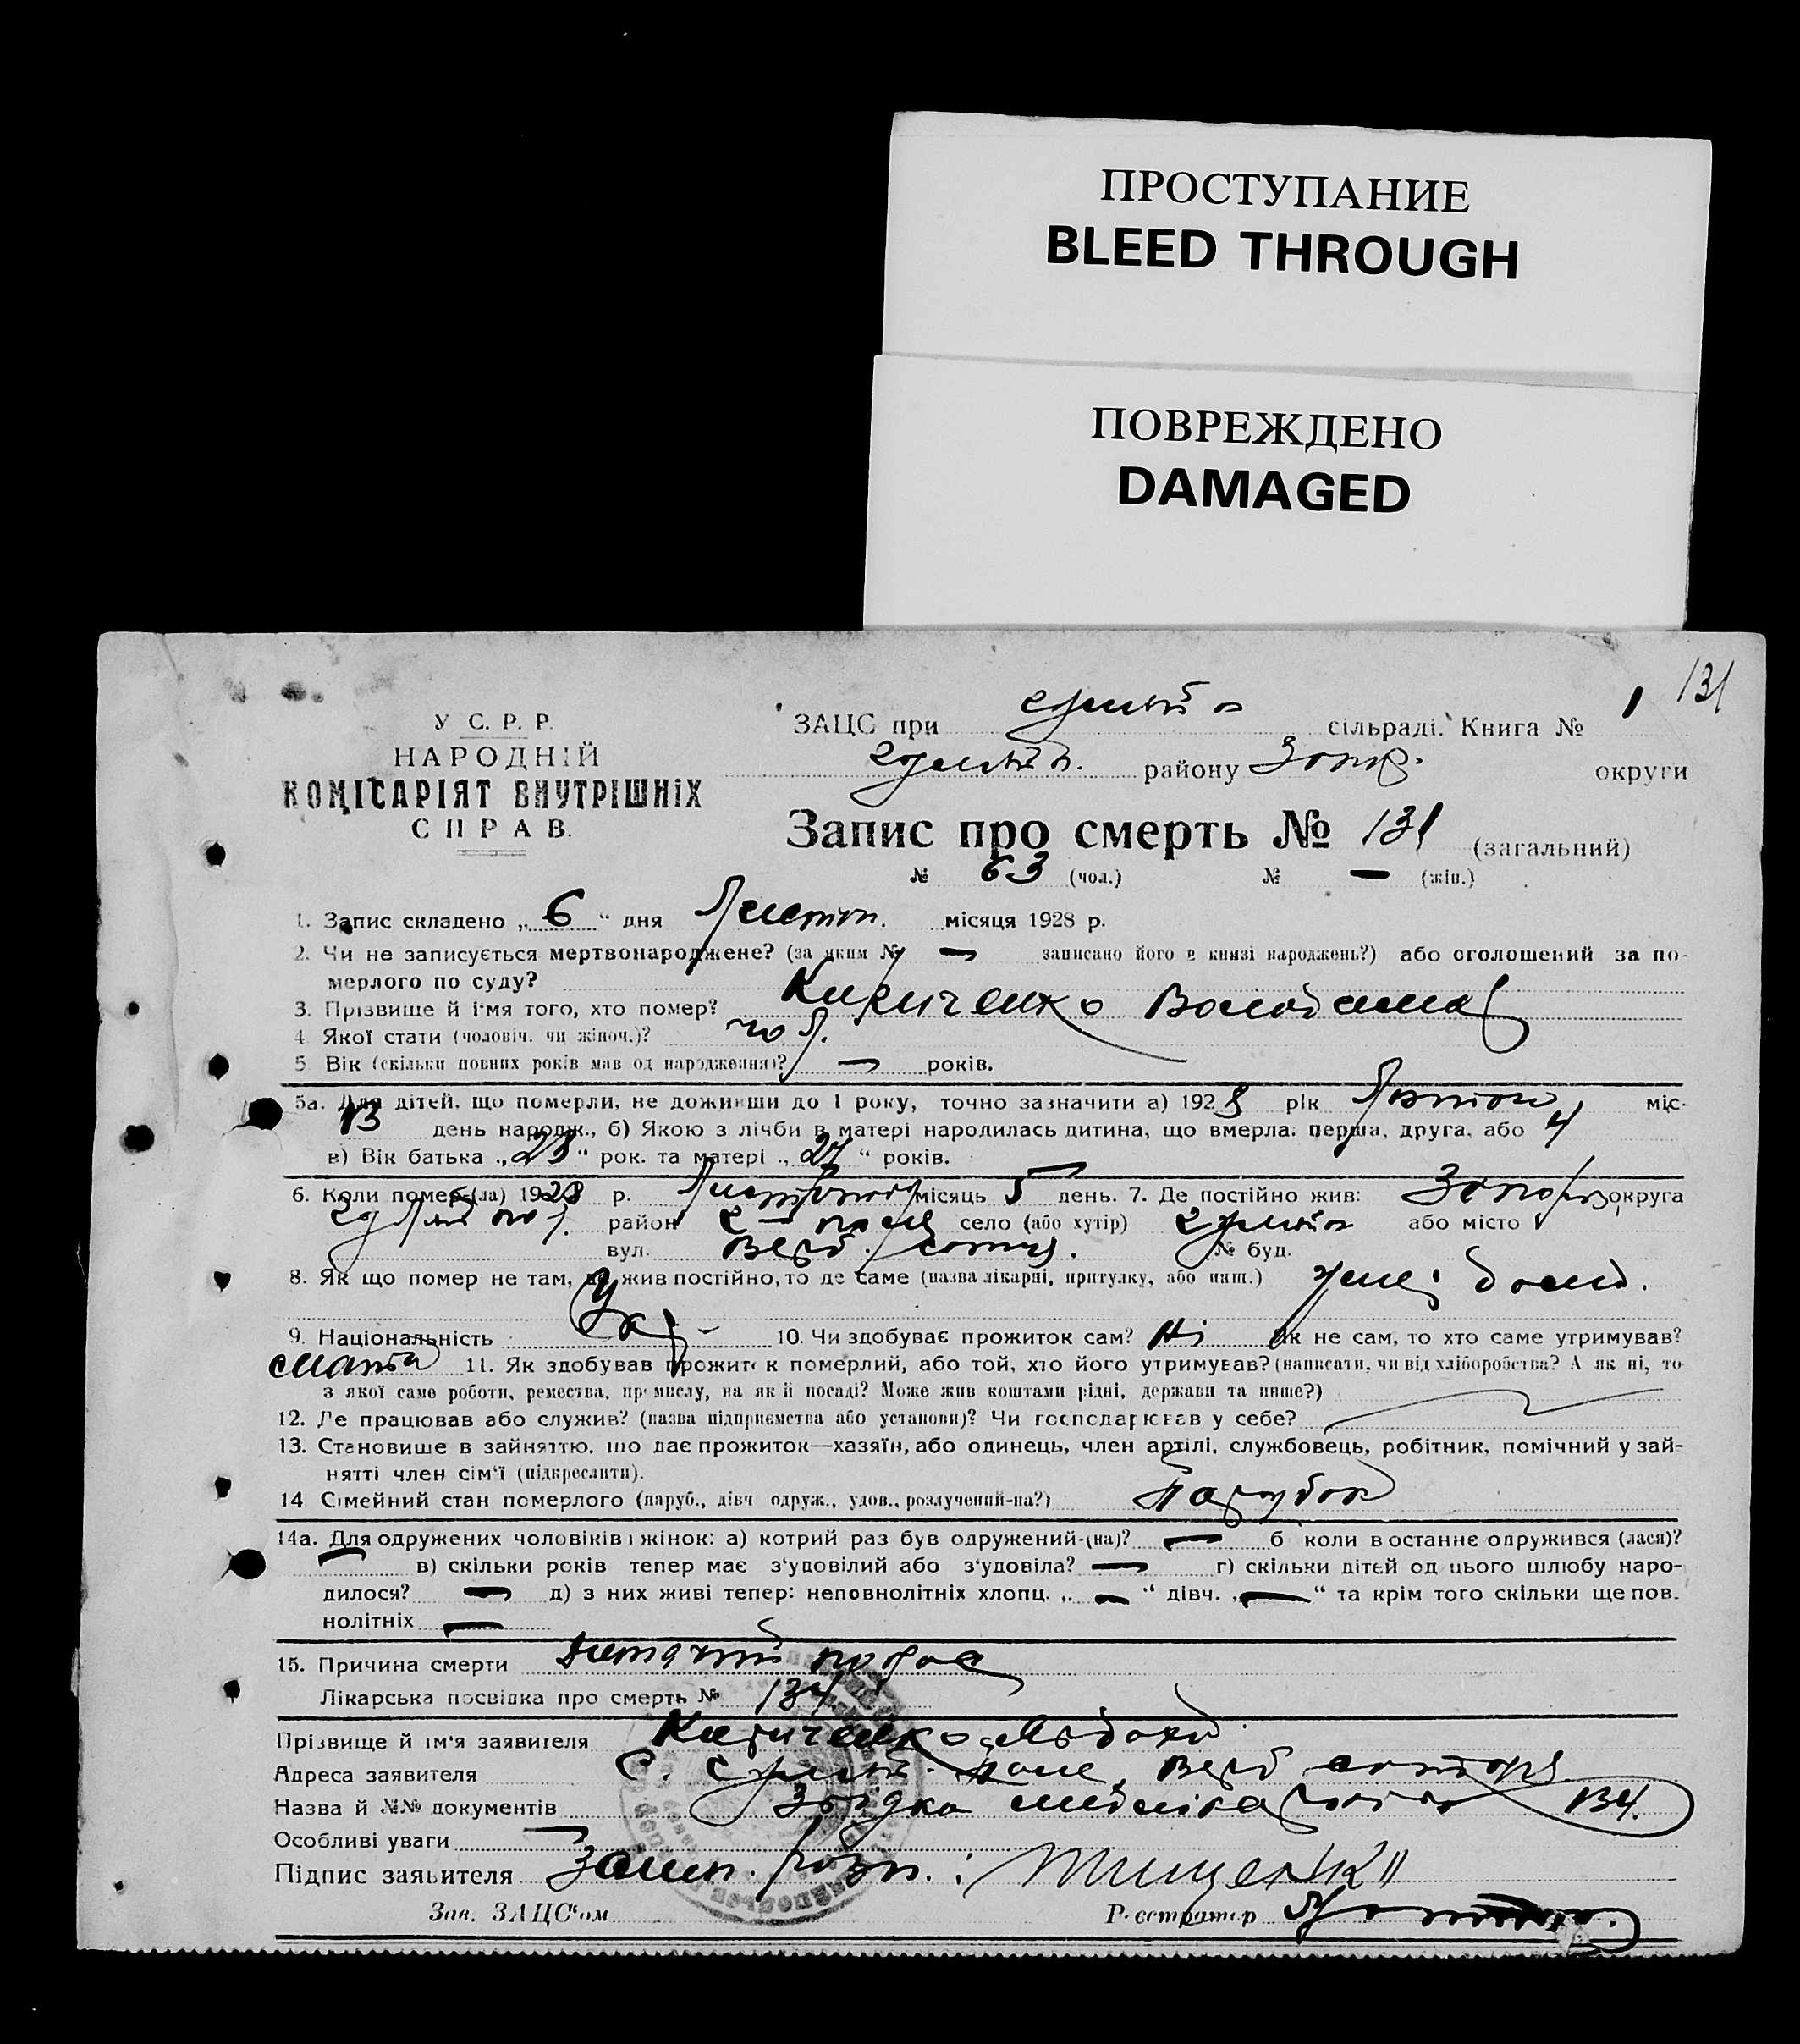 ПРОСТУПАНИЕ
BLEED THROUGH
ПОВРЕЖДЕНО
DAMAGED
131
У С. Р. Р.
НАРОДНІЙ
КОМІСАРІЯТ ВНУТРІШНІХ
СПРАВ.
ЗАЦС при сільраді. Книга № 1
району округи
Запис про смерть № 131 (загальний)
№ 63 (чол.) № — (жін.)
1. Запис складено „ 6 “ дня Листоп. місяця 1928 р.
2. Чи не записується мертвонароджене? (за яким № — записано його в книзі народжень?) або оголошений за по-
мерлого по суду?
3. Прізвище й ім'я того, хто помер? Кириченко Володимир
4 Якої стати (чоловіч. чи жіноч.)? чол.
5 Вік (скільки повних років мав од народження)? — років.
5а. Для дітей, що померли, не доживши до 1 року, точно зазначити а) 1928 рік міс.
13 день народж., б) Якою з лічби в матері народилась дитина, що вмерла: перша, друга, або 4
в) Вік батька „ 23 “ рок. та матері „ 24 “ років.
6. Коли помер (ла) 1928 р. Листопад місяць 5 день. 7. Де постійно жив: округа
район село (або хутір) або місто
вул. Верб. № буд.
8. Як що помер не там, де жив постійно, то де саме (назва лікарні, притулку, або инш.)
9. Національність Укр. 10. Чи здобуває прожиток сам? Ні Як не сам, то хто саме утримував?
мати 11. Як здобував прожиток померлий, або той, хто його утримував? (написати, чи від хліборобства? А як ні, то
з якої саме роботи, ремества, промислу, на якій посаді? Може жив коштами рідні, держави та инше?)
12. Де працював або служив? (назва підприємства або установи)? Чи господарював у себе?
13. Становище в зайняттю, що дає прожиток—хазяїн, або одинець, член артілі, службовець, робітник, помічний у зай-
нятті член сім'ї (підкреслити).
14 Сімейний стан померлого (паруб., дівч одруж., удов., розлучений-на?) Парубок
14а. Для одружених чоловіків і жінок: а) котрий раз був одружений-(на)? — б коли в останнє одружився (лася)?
— в) скільки років тепер має з'удовілий або з'удовіла? — г) скільки дітей од цього шлюбу наро-
дилося? — д) з них живі тепер: неповнолітніх хлопц. „ — “ дівч. „ — “ та крім того скільки ще пов.
нолітніх —
15. Причина смерти Дитячий понос
Лікарська посвідка про смерть № 134
Прізвище й ім'я заявителя Кириченко Явдоха
Адреса заявителя
Назва й №№ документів 134.
Особливі уваги —
Підпис заявителя Тищенко
Зав. ЗАЦС'ом Реєстратор